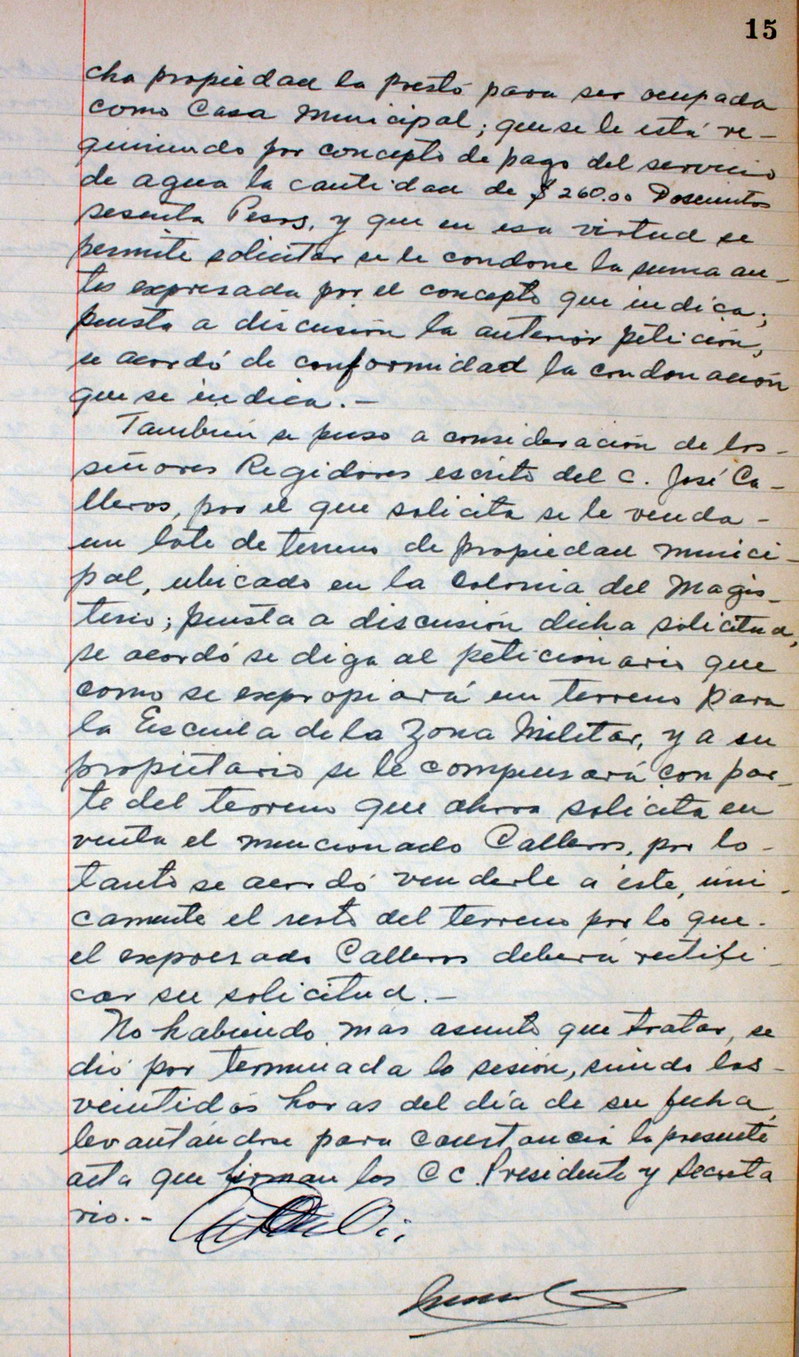 15
cha propiedad la prestó para ser ocupada
como Casa Municipal; que se le está re-
quiriendo por concepto de pago del servicio
de agua la cantidad de $260.00 Doscientos
sesenta Pesos, y que en esa virtud se
permite solicitar se le condone la suma an-
tes expresada por el concepto que indica;
puesta a discusión la anterior petición,
se acordó de conformidad la condonación
que se indica.-
También se puso a consideración de los-
señores Regidores escrito del c. José Ca-
lleros, por el que solicita se le venda-
un lote de terreno de propiedad munici-
pal, ubicado en la Colonia del Magis-
terio; puesta a discusión dicha solicitud,
se acordó se diga al peticionario que
como se expropiará un terreno para
la Escuela de la Zona Militar, y a su
propietario se le compensará con par-
te del terreno que ahora solicita en
venta el mencionado Calleros, por lo-
tanto se acordó venderle a éste, úni-
camente el resto del terreno por lo que-
el expresado Calleros deberá rectifi-
car su solicitud.-
No habiendo más asunto que tratar, se
dió por terminada la sesión, siendo las-
veintidós horas del día de su fecha,
levantándose para constancia la presente
acta que firman los C C. Presidente y Secreta
rio.-